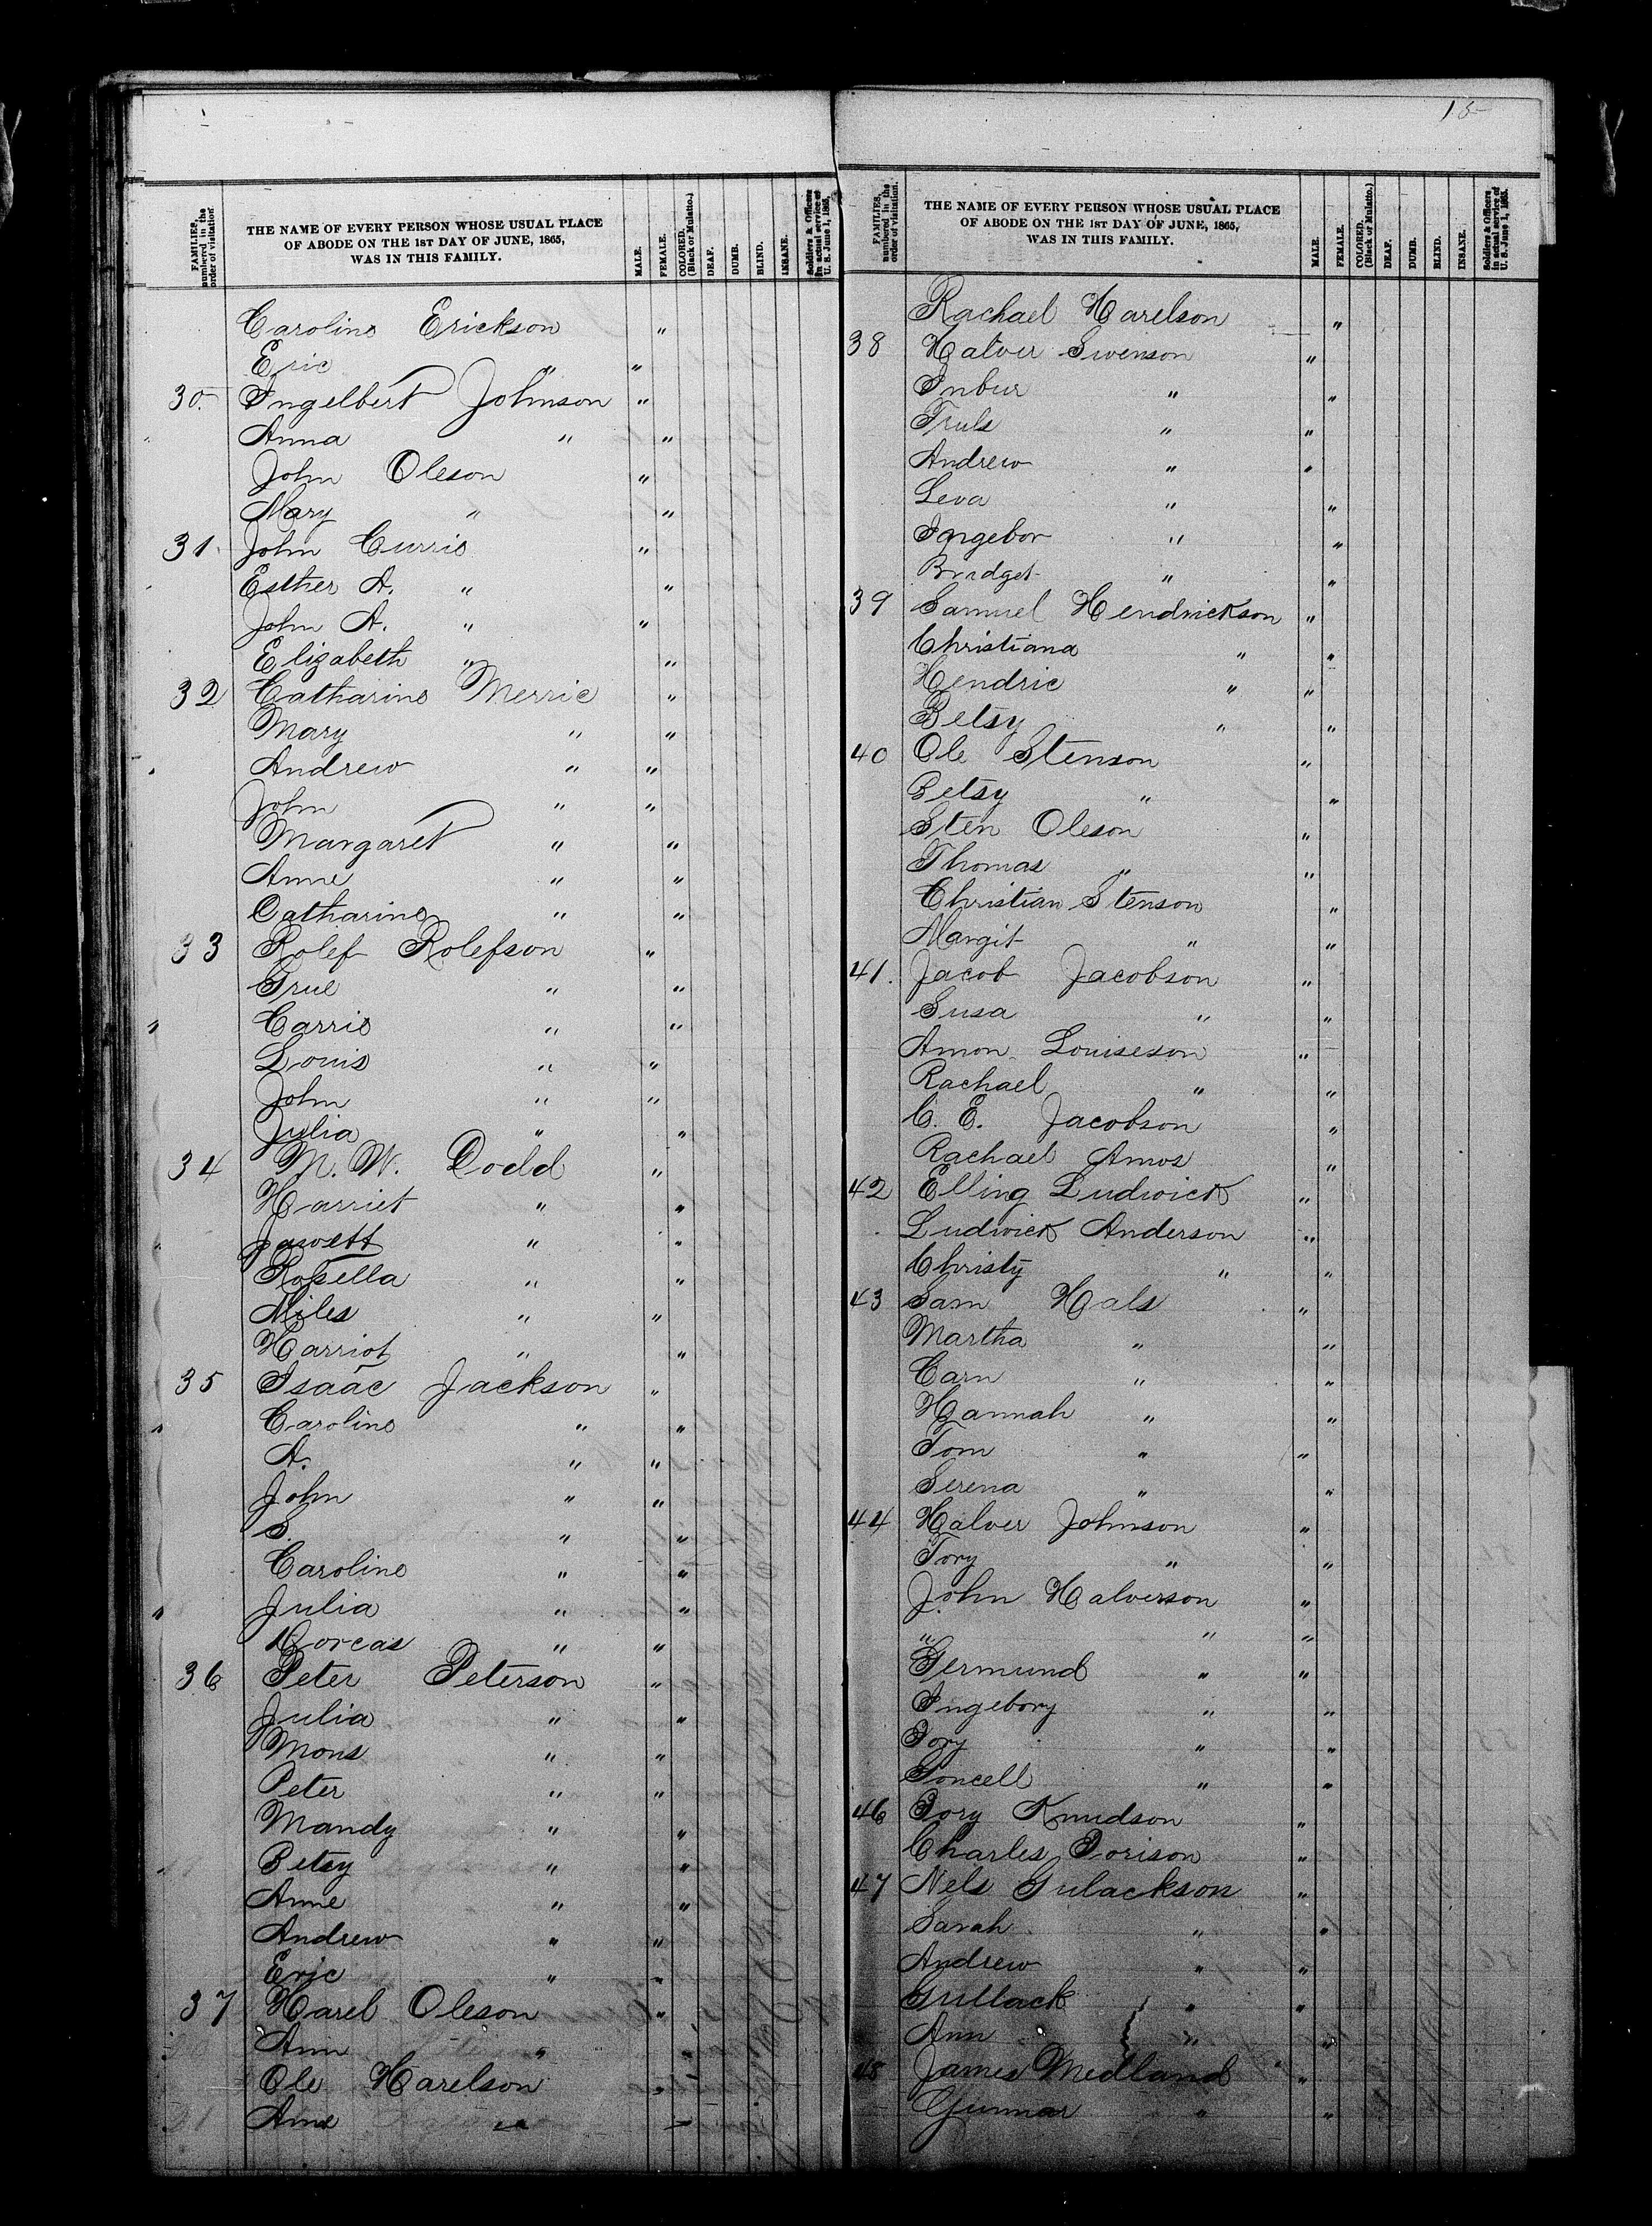 15
FAMILIES, numbered in the order of visitation
THE NAME OF EVERY PERSON WHOSE USUAL PLACE
OF ABODE ON THE 1ST DAY OF JUNE, 1865,
WAS IN THIS FAMILY.
MALE.
FEMALE.
COLORED. (Black or Mulatto.)
DEAF.
DUMB.
BLIND.
INSANE.
Soldiers & Officers in actual service of U. S. June 1, 1865.
Caroline Erickson "
Eric " "
30. Ingelbert Johnson "
Anna " "
John Oleson "
Mary " "
31. John Currie "
Esther A. " "
John A. " "
Elizabeth " "
32 Catharine Merric "
Mary " "
Andrew " "
John " "
Margaret " "
Anne " "
Catharine " "
33 Rolef Rolefson "
Grue " "
Carrie " "
Louis " "
John " "
Julia " "
34 M. W. Dodd "
Harriet " "
Jawett " "
Rosella " "
Miles " "
Harriot " "
35 Isaac Jackson "
Caroline " "
A. " "
John " "
S. " "
Caroline " "
Julia " "
Dorcas " "
36 Peter Peterson "
Julia " "
Mons " "
Peter " "
Mandy " "
Betsy " "
Anne " "
Andrew " "
Eric " "
37 Harel Oleson "
Ann " "
Ole Harelson "
Ame " "
FAMILIES, numbered in the order of visitation.
THE NAME OF EVERY PERSON WHOSE USUAL PLACE
OF ABODE ON THE 1ST DAY OF JUNE, 1865,
WAS IN THIS FAMILY.
MALE.
FEMALE.
COLORED. (Black or Mulatto.)
DEAF.
DUMB.
BLIND.
INSANE.
Soldiers & Officers in actual service of U. S. June 1, 1865.
Rachael Harelson "
38 Halver Swenson "
Inbur " "
Truls " "
Andrew " "
Leva " "
Ingebor " "
Bridget " "
39 Samuel Hendrickson "
Christiana " "
Hendric " "
Betsy " "
40 Ole Stenson "
Betsy " "
Sten Oleson "
Thomas " "
Christian Stenson "
Margit " "
41. Jacob Jacobson "
Susa " "
Amon Louiseson "
Rachael " "
C. E. Jacobson "
Rachael Amos "
42 Elling Ludwick "
Ludwick Anderson "
Christy " "
43 Sam Hals "
Martha " "
Carn " "
Hannah " "
Tom " "
Serena " "
44 Halver Johnson "
Tory " "
John Halverson "
" " "
Germund " "
Ingebory " "
Tory " "
Toncell " "
46 Tory Knudson "
Charles Torison "
47 Nels Gulackson "
Sarah " "
Andrew " "
Gullack " "
Ann " "
48 James Medland "
Gunnar " "